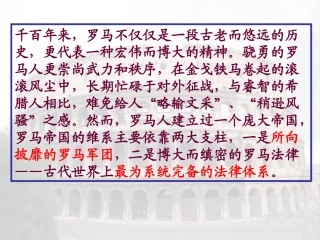 千百年来，罗马不仅仅是一段古老而悠远的历
史，更代表一种宏伟而博大的精神。骁勇的罗
马人更崇尚武力和秩序，在金戈铁马卷起的滚
滚风尘中，长期忙碌于对外征战，与睿智的希
腊人相比，难免给人“略输文采”、“稍逊风
骚”之感。然而，罗马人建立过一个庞大帝国，
罗马帝国的维系主要依靠两大支柱，一是所向
披靡的罗马军团，二是博大而缜密的罗马法律
——古代世界上最为系统完备的法律体系。